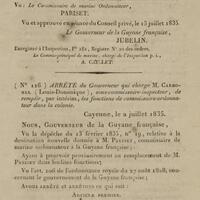 Vu: Le Commissaire de marine Ordonnateur,
PARISET.
Vu et approuvé en séance du Conseil privé, le 13 juillet 1835.
Le Gouverneur de la Guyane française,
JUBELIN.
Enregistré à l'Inspection, F° 182, Registre N° 20 des ordres.
Le Commis principal de marine, chargé de l'inspection p. i.,
A. GALLET.
( N° 126 ) ARRÊTÉ du Gouverneur qui charge M.
(Louis-Dominique), sous-commissaire inspecteur, de
remplir, par intérim, les fonctions de commissaire ordonna-
teur dans la colonie.
Cayenne, le juillet 1835.
Nous, Gouverneur de la Guyane française,
Vu la dépêche du 13 février 1835, n° 19, relative à la
destination nouvelle donnée à M. Pariset, commissaire de
marine ordonnateur à la Guyane française;
Ayant à pourvoir provisoirement au remplacement de M.
Pariset dans lesdites fonctions;
Vu l'art. de l'ordonnance royale du 27 août 1828,
concernant le gouvernement de la Guyane française,
Avons arrêté et arrêtons ce qui suit:
Article premier.